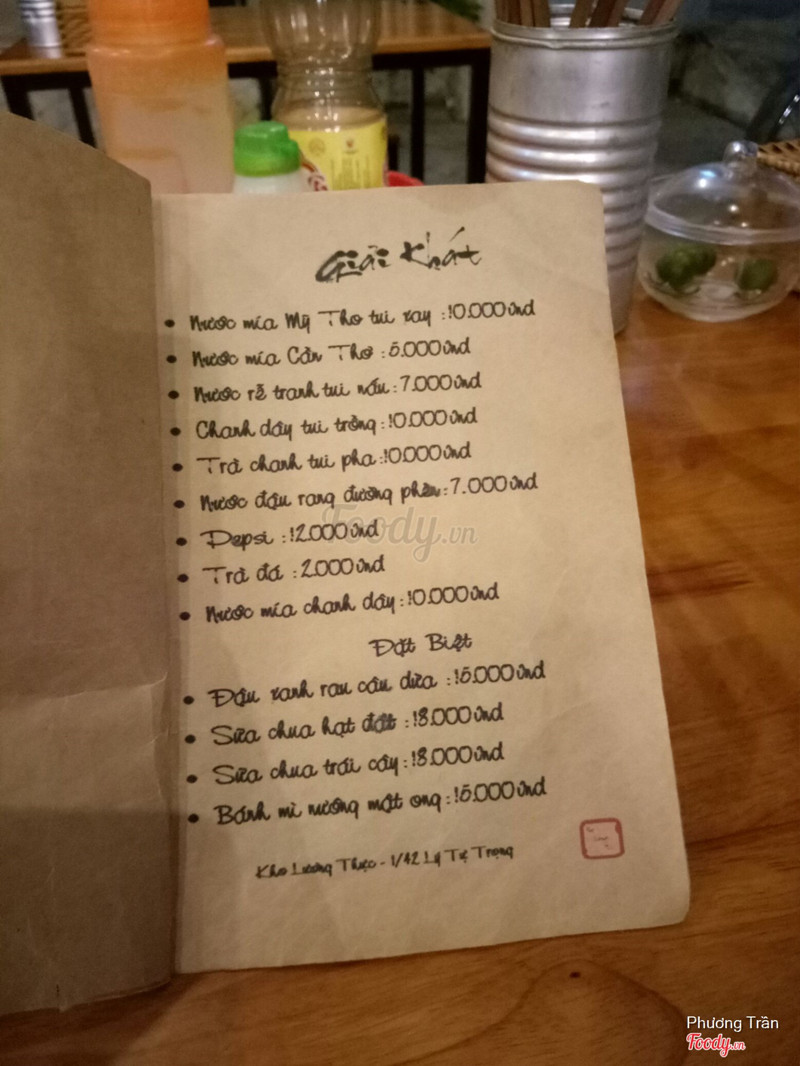 Giải Khát
Nước mía Mỹ Tho tui xay : 10.000 vnd
Nước mía Cần Thơ : 5.000 vnd
Nước rễ tranh tui nấu : 7.000 vnd
Chanh dây tui trồng : 10.000 vnd
Trà chanh tui pha : 10.000 vnd
Nước đậu rang đường phèn : 7.000 vnd
Pepsi : 12.000 vnd
Trà đá : 2.000 vnd
Nước mía chanh dây : 10.000 vnd
Đặt Biệt
Đậu xanh rau câu dừa : 15.000 vnd
Sữa chua hạt đát : 18.000 vnd
Sữa chua trái cây : 18.000 vnd
Bánh mì nướng mật ong : 15.000 vnd
Kho Lương Thực - 1/42 Lý Tự Trọng
Foody.vn
Phương Trần
Foody.vn